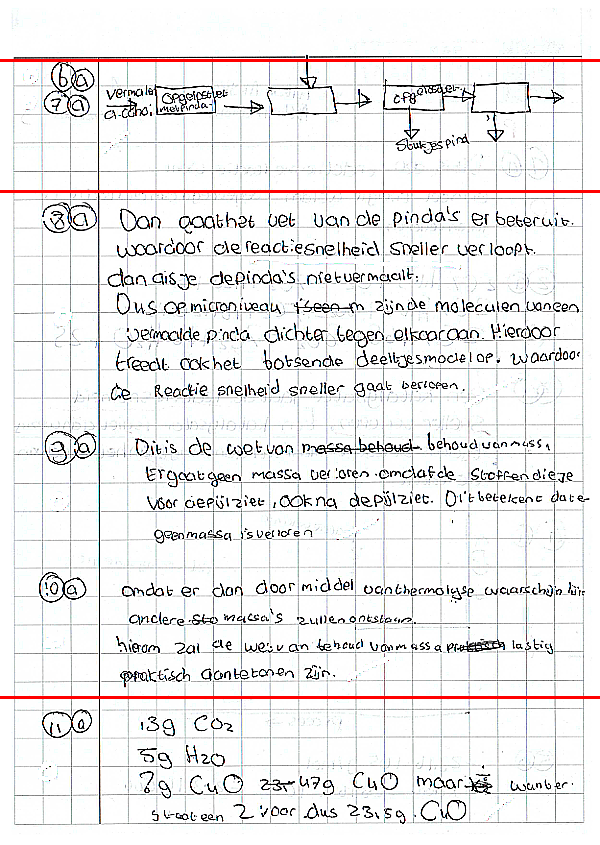 6 a
7 a
Vermalen opgelosset opgelosset
alcohol metpinda.
Stukjespind
8 a Dan gaathet vet van de pinda's er beteruit.
waardoor de reactiesnelheid sneller verloopt.
dan als je depinda's nietvermaalt.
Dus op microniveau zijnde moleculen van een
vermaalde pinda dichter tegen elkaar aan. Hierdoor
treedt ook het botsende deeltjesmodel op. waardoor
de Reactie snelheid sneller gaat verlopen.
9 a Dit is de wet van massa behoud behoud van massa
Er gaat geen massa verloren omdat de stoffen die je
voor de pijl ziet, ook na de pijl ziet. Dit betekent dat e
geen massa is verloren
10 a omdat er dan door middel van thermolyse waarschijnlijk
andere sto massa's zullen ontstaan.
hierom zal de wet van behoud van massa lastig
praktisch aantetonen zijn.
11 a 13g CO2
5g H2O
?g CuO 23,- 47g CuO maar wanber.
staat een 2 voor dus 23,5g. CuO